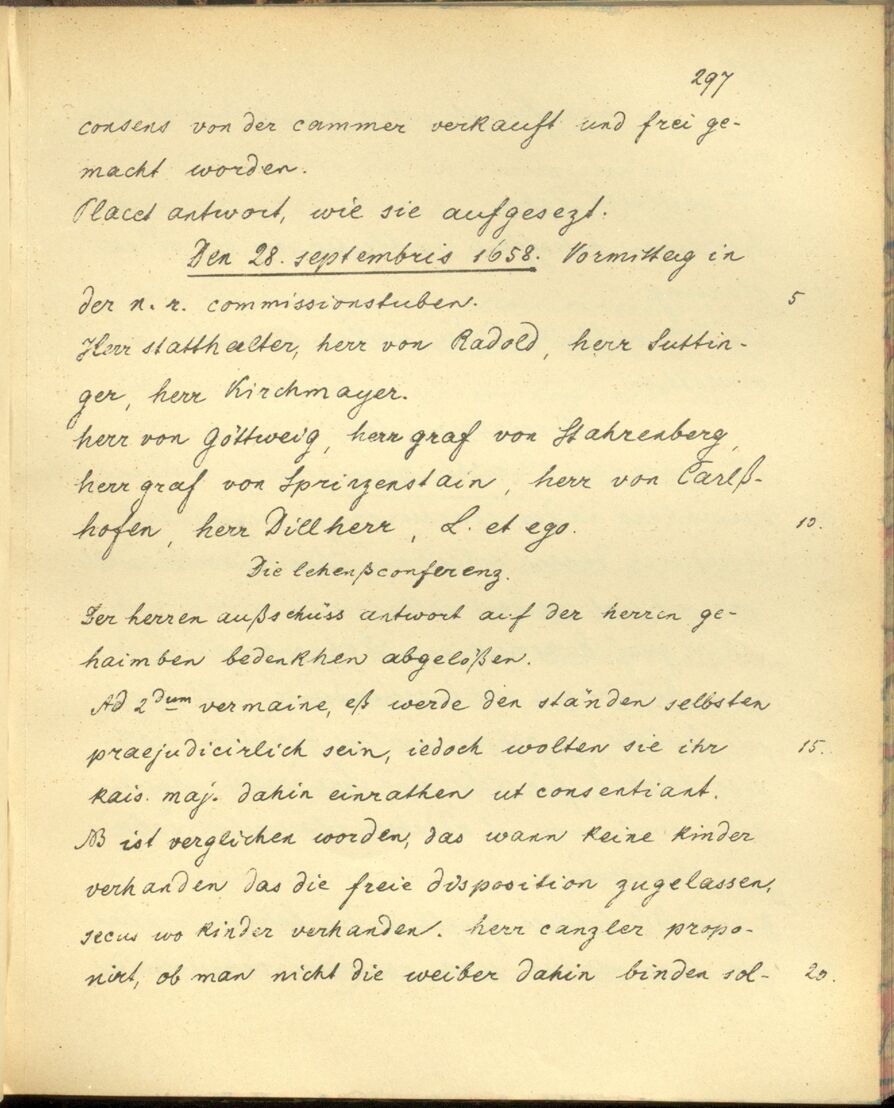 297
consens von der cammer verkauft und frei ge-
macht worden.
Placet antwort, wie sie aufgesezt.
Den 28. septembris 1658. Vormittag in
der n. r. commissionstuben. 5
Herr statthalter, herr von Radold, herr Suttin-
ger, herr Kirchmayer.
herr von Göttweig, herr graf von Stahrenberg,
herr graf von Sprinzenstain, herr von Carlß-
hofen, herr Dillherr, L. et ego. 10.
Die lehenßconferenz.
Der herren außschüss antwort auf der herren ge-
haimben bedenkhen abgelößen.
Ad 2dum vermaine, eß werde den ständen selbsten
praejudicirlich sein, iedoch wolten sie ihr 15.
kais. maj. dahin einrathen ut consentiant.
NB ist verglichen worden, das wann keine kinder
verhanden das die freie disposition zugelassen,
secus wo kinder verhanden. herr canzler propo-
nirt, ob man nicht die weiber dahin binden sol- 20.